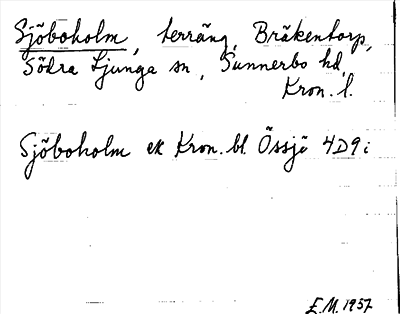 Sjöboholm, terräng, Bräkentorp,
Södra Ljunga sn, Sunnerbo hd,
Kron. l.
Sjöboholm ek Kron. bl. Össjö 4D9i
E.M. 1957